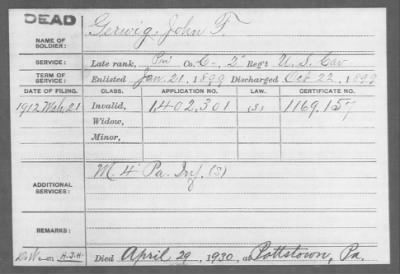 DEAD
NAME OF SOLDIER: Gerwig, John F.
SERVICE: Late rank, Pri Co. C-, 2" Reg't U.S. Cav
TERM OF SERVICE: Enlisted Jan. 21, 1899 Discharged Oct 22, 1899
DATE OF FILING. CLASS. APPLICATION NO. LAW. CERTIFICATE NO.
1912 Mch 21 Invalid, 1,402,301 (S) 1169,157
Widow,
Minor,
ADDITIONAL SERVICES: M. 4" Pa. Inf. (S)
REMARKS:
Died April 29, 1930, at Pottstown, Pa.